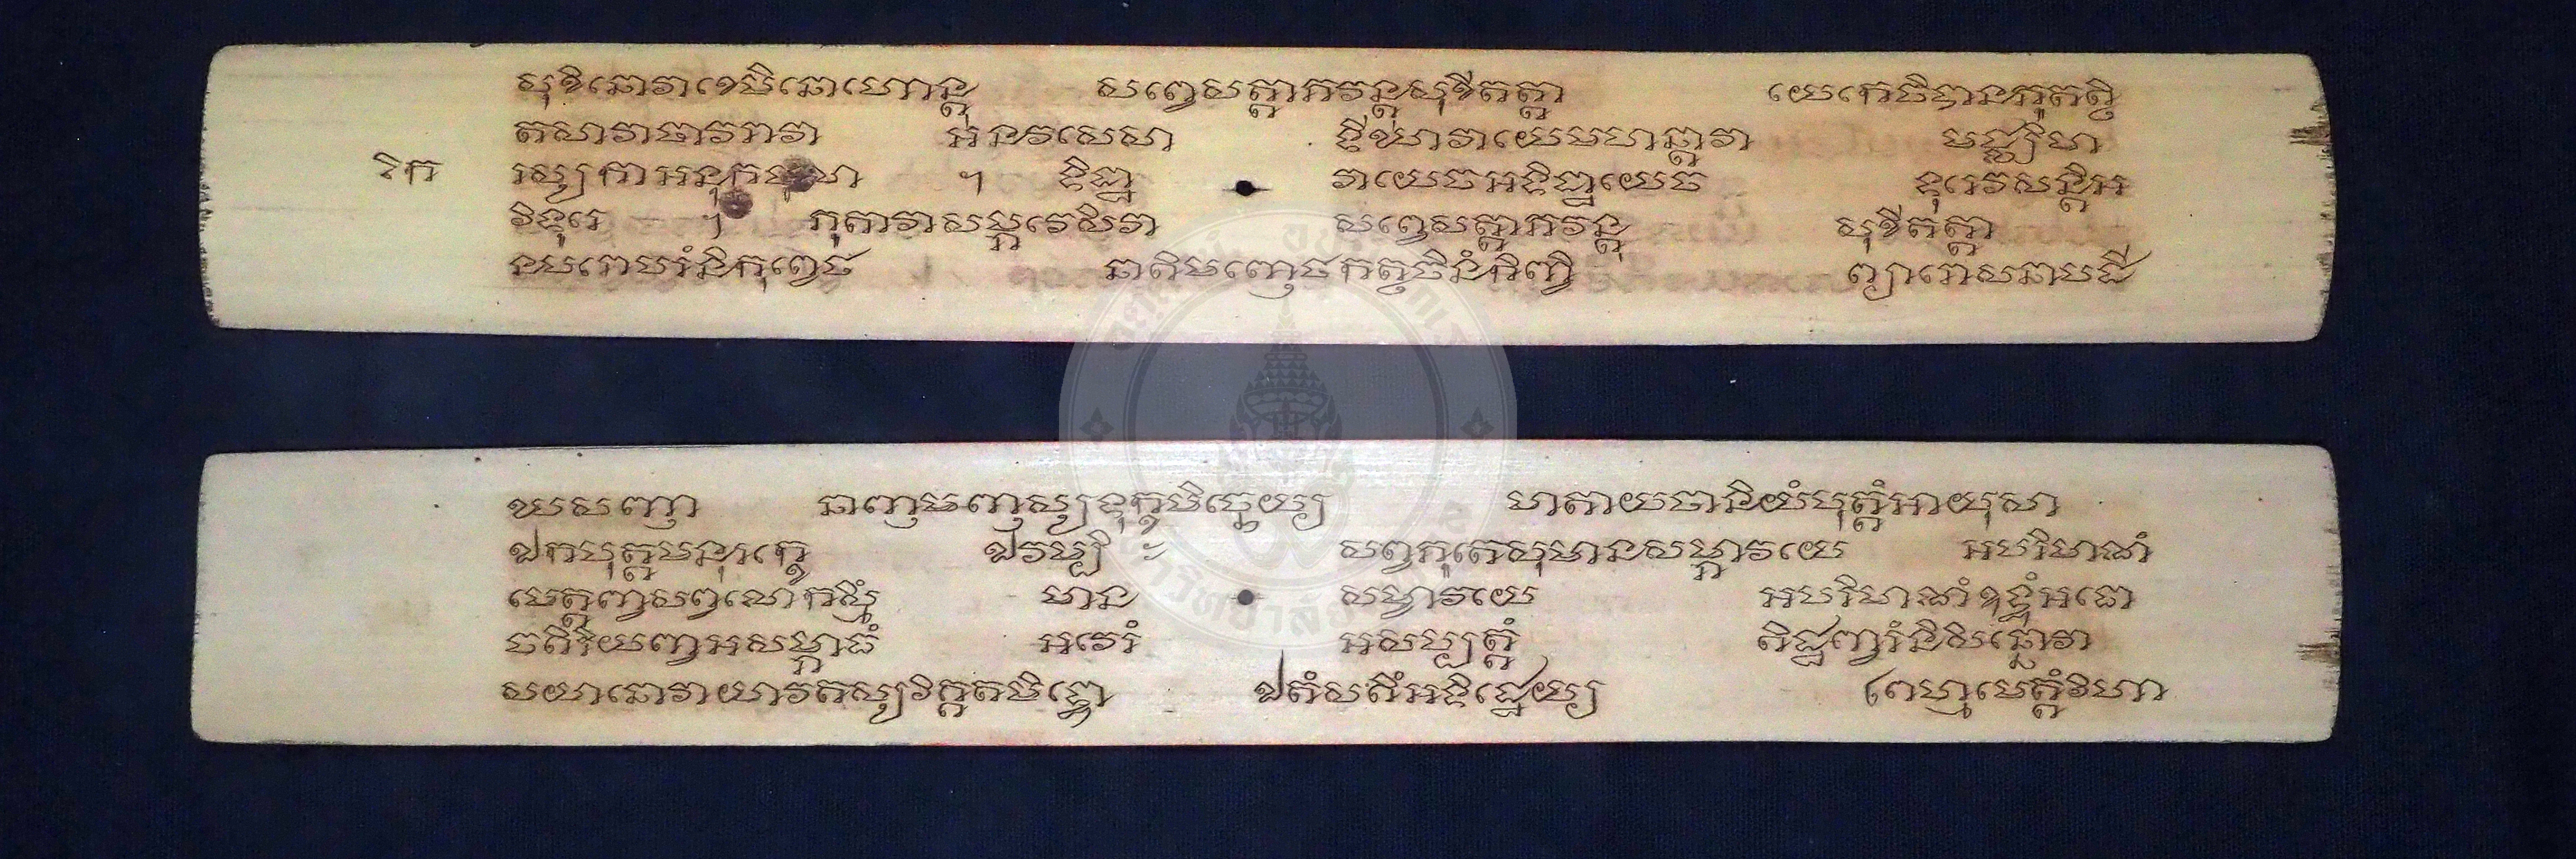 សុខិនោវាខេមិនោហោន្តុ សព្វេសត្តាភវន្តុសុខីតត្តា យេកេចិប្បានភូតត្ថិ
តសាវាថាវរាវា អនវសេសា ទីឃាវាយេមហន្តាវា មជ្ឈិមា
រិក រស្សកាអនុកថូលា ។ ទិដ្ឋា វាយេចអទិដ្ឋាយេច ទុរេវសន្តិអ
វិទុរេ ។ ភុតាវាសម្ភវេសិវា សព្វេសត្តាភវន្តុ សុខីតត្តា
នបរោបរំនិកុព្វេថ នាតិមញ្ញេថកត្ថចិនំកិញ្ចិ ព្យារោសនាបដី
ឃសញា នាញមញស្សទុក្ខមិច្ឆេយ្យ មាតាយថានិយំបុត្តំអាយុសា
ឯកបុត្តមនុរក្ខេ ឯវម្បិ ៈ សព្វភូតេសុមានសម្ភាវយេ អបរិមាណំ
មេត្តញ្ចសព្វលោកស្មឹ មាន សម្ភាវយេ អបរិមាណំឧទ្ធំអធោ
ចតិរិយញ្ចអសម្ពាធំ អវេរំ អសម្បត្តំ តិដ្ឋញ្ចរំនិសិន្នោវា
សយានោវាយាវតស្សវិគ្គតមិទ្ធោ ឯតំសតឹអទិដ្ឋេយ្យ ព្រហ្មមេត្តំវិហា